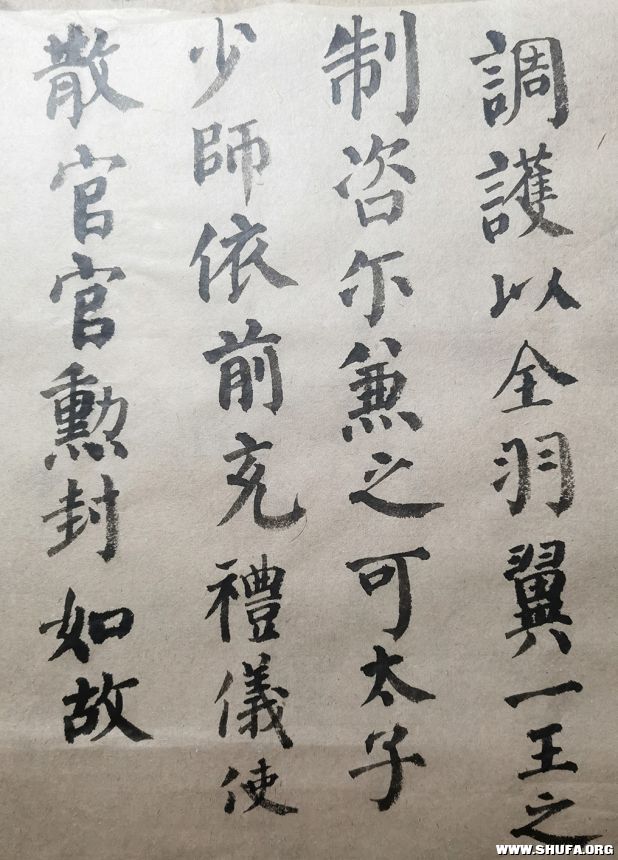 調護以全羽翼一王之
制咨尔兼之可太子
少師依前充禮儀使
散官官勲封如故
WWW.SHUFA.ORG